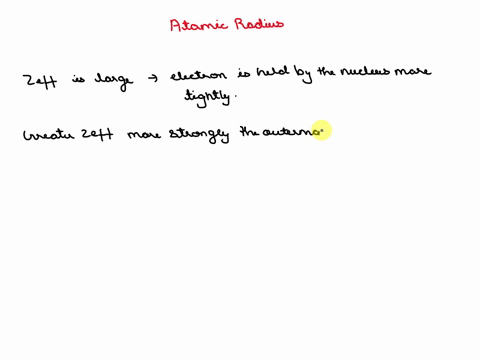 Atomic Radius
Zeff is large → electron is held by the nucleus more
tightly.
Greater Zeff more strongly the outermo